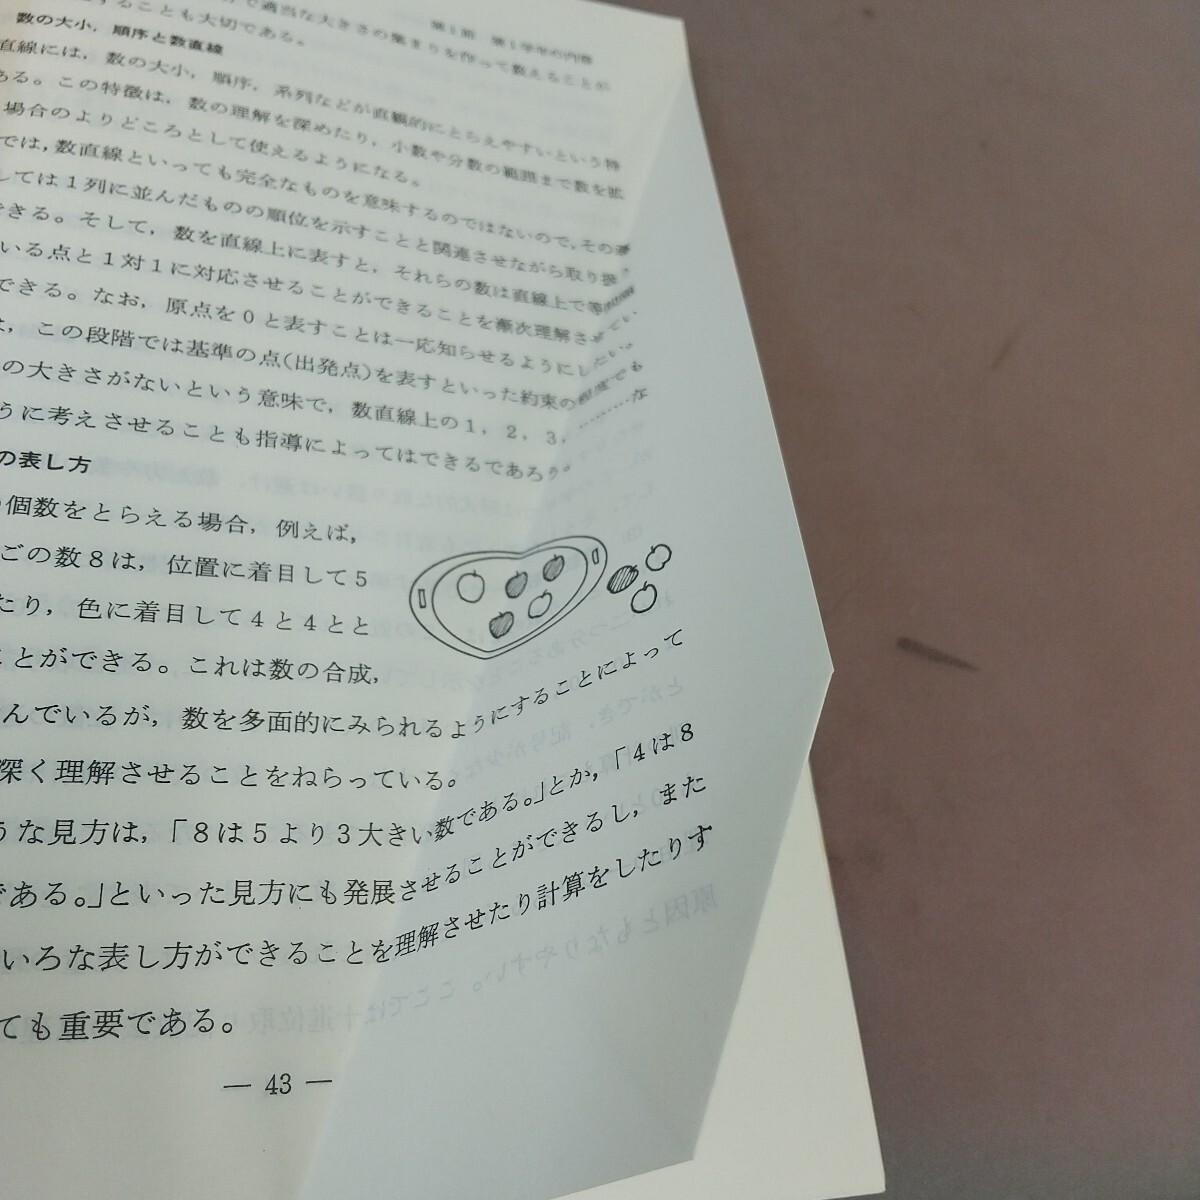 第1節 第1学年の内容
で適当な大きさの集まりを作って数えることが
することも大切である。
数の大小，順序と数直線
直線には，数の大小，順序，系列などが直観的にとらえやすいという特
ある。この特徴は，数の理解を深めたり，小数や分数の範囲まで数を拡
場合のよりどころとして使えるようになる。
では，数直線といっても完全なものを意味するのではないので，その
しては１列に並んだものの順位を示すことと関連させながら取り扱
できる。そして，数を直線上に表すと，それらの数は直線上で等間隔
いる点と１対１に対応させることができることを漸次理解させてい
できる。なお，原点を０と表すことは一応知らせるようにしたい。
，この段階では基準の点(出発点)を表すといった約束の程度でも
の大きさがないという意味で，数直線上の１，２，３，………な
うに考えさせることも指導によってはできるであろう。
の表し方
個数をとらえる場合，例えば，
ごの数８は，位置に着目して５
たり，色に着目して４と４とと
ことができる。これは数の合成，
んでいるが，数を多面的にみられるようにすることによって
深く理解させることをねらっている。
うな見方は，「８は５より３大きい数である。」とか，「４は８
である。」といった見方にも発展させることができるし，また
いろな表し方ができることを理解させたり計算をしたりす
ても重要である。
— 43 —